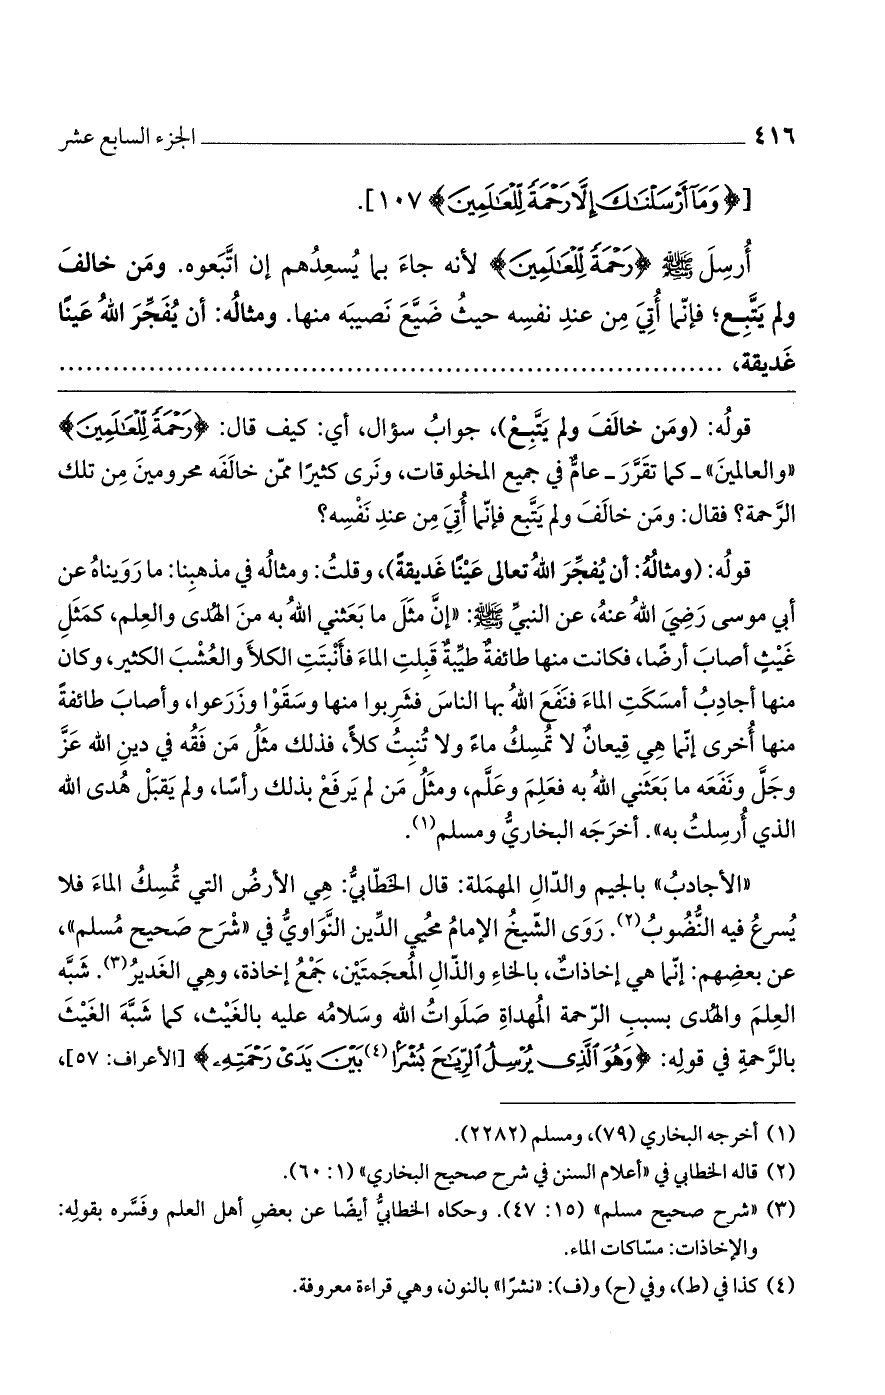 ٤١٦ ــــــــــــــــــــــــــــــــــــــــ الجزء السابع عشر
[﴿وَمَآ أَرْسَلْنَٰكَ إِلَّا رَحْمَةً لِّلْعَٰلَمِينَ﴾ ١٠٧].
أُرسِلَ ﷺ ﴿رَحْمَةً لِّلْعَٰلَمِينَ﴾ لأنه جاءَ بما يُسعِدُهم إن اتَّبَعوه. ومَن خالفَ
ولم يَتَّبِع؛ فإنّما أُتِيَ مِن عندِ نفسِه حيثُ ضَيَّعَ نَصيبَه منها. ومثالُه: أن يُفَجِّرَ اللهُ عَينًا
غَديقة، ........................................................................
قولُه: (ومَن خالَفَ ولم يَتَّبِعْ)، جوابُ سؤال، أي: كيف قال: ﴿رَحْمَةً لِّلْعَٰلَمِينَ﴾
«والعالمينَ» ـ كما تقَرَّرَ ـ عامٌّ في جميع المخلوقات، ونَرى كثيرًا ممّن خالَفَه محرومينَ مِن تلك
الرَّحمة؟ فقال: ومَن خالَفَ ولم يَتَّبِع فإنّما أُتِيَ مِن عندِ نَفْسِه؟
قولُه: (ومثالُهُ: أن يُفجِّرَ اللهُ تعالى عَيْنًا غَديقةً)، وقلتُ: ومثالُه في مذهبِنا: ما رَوَيناهُ عن
أبي موسى رَضِيَ اللهُ عنهُ، عن النبيِّ ﷺ: «إنَّ مثَلَ ما بَعَثني اللهُ به منَ الهُدى والعِلم، كمَثَلِ
غَيْثٍ أصابَ أرضًا، فكانت منها طائفةٌ طيِّبةٌ قَبِلتِ الماءَ فأَنْبَتَتِ الكلأَ والعُشْبَ الكثير، وكان
منها أجادِبُ أمسَكَتِ الماءَ فنَفَعَ اللهُ بها الناسَ فشَرِبوا منها وسَقَوْا وزَرَعوا، وأصابَ طائفةً
منها أُخرى إنّما هِي قِيعانٌ لا تُمسِكُ ماءً ولا تُنبِتُ كلأً، فذلك مثَلُ مَن فَقُه في دينِ الله عَزَّ
وجَلَّ ونَفَعَه ما بَعَثَني اللهُ به فعَلِمَ وعَلَّم، ومثَلُ مَن لم يَرفَعْ بذلك رأسًا، ولم يَقبَلْ هُدى الله
الذي أُرسِلتُ به». أخرَجَه البخاريُّ ومسلم(١).
«الأجادبُ» بالجيم والدّالِ المهمَلة: قال الخَطّابيُّ: هِي الأرضُ التي تُمسِكُ الماءَ فلا
يُسرعُ فيه النُّضُوبُ(٢). رَوَى الشّيخُ الإمامُ محيُي الدِّين النَّوَاويُّ في «شْرَح صَحيح مُسلم»،
عن بعضِهم: إنّما هي إخاذاتٌ، بالخاءِ والذّالِ المُعجَمتَيْن، جَمْعُ إخاذة، وهِي الغَديرُ(٣). شَبَّه
العِلمَ والهُدى بسببِ الرّحمة المُهداةِ صَلَواتُ الله وسَلامُه عليه بالغَيْث، كما شَبَّهَ الغَيْثَ
بالرَّحمةِ في قولِه: ﴿وَهُوَ ٱلَّذِى يُرْسِلُ ٱلرِّيَٰحَ بُشْرًۢا(٤) بَيْنَ يَدَىْ رَحْمَتِهِۦ﴾ [الأعراف: ٥٧]،
(١) أخرجه البخاري (٧٩)، ومسلم (٢٢٨٢).
(٢) قاله الخطابي في «أعلام السنن في شرح صحيح البخاري» (١: ٦٠).
(٣) «شرح صحيح مسلم» (١٥: ٤٧). وحكاه الخطابيُّ أيضًا عن بعضِ أهل العلم وفَسَّره بقولِه:
والإخاذات: مسّاكات الماء.
(٤) كذا في (ط)، وفي (ح) و(ف): «نشرًا» بالنون، وهي قراءة معروفة.